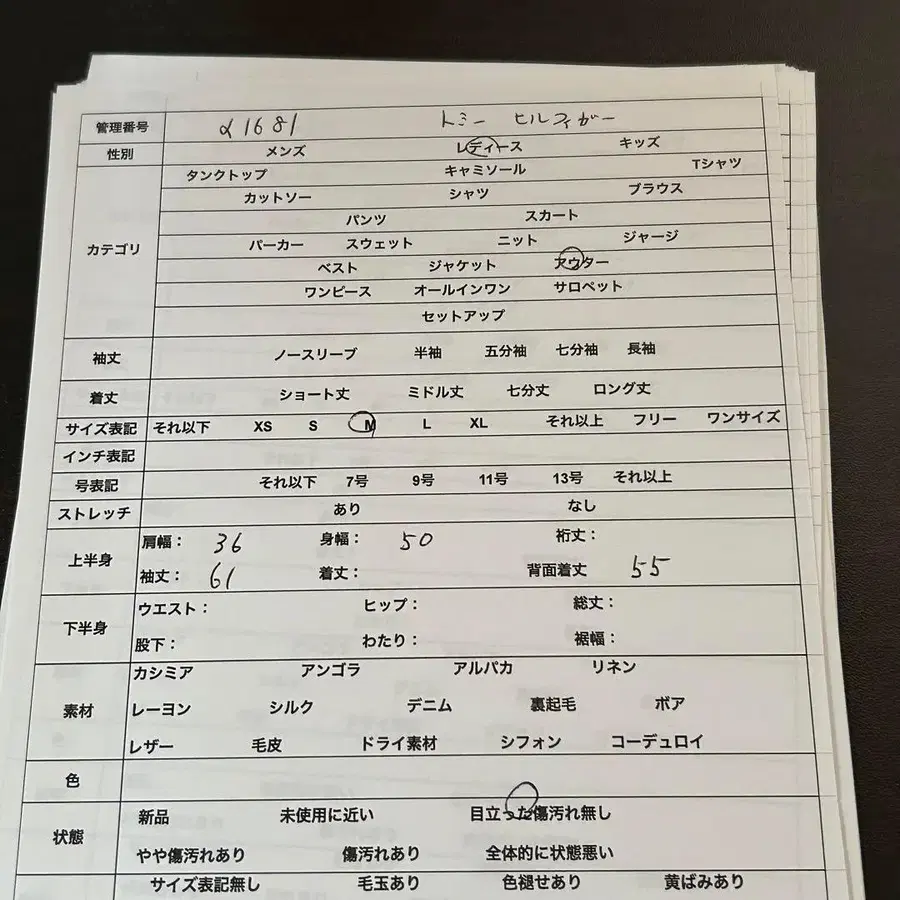 管理番号 α1681 トミー ヒルフィガー
性別 メンズ レディース キッズ
カテゴリ
タンクトップ キャミソール Tシャツ
カットソー シャツ ブラウス
パンツ スカート
パーカー スウェット ニット ジャージ
ベスト ジャケット アウター
ワンピース オールインワン サロペット
セットアップ
袖丈 ノースリーブ 半袖 五分袖 七分袖 長袖
着丈 ショート丈 ミドル丈 七分丈 ロング丈
サイズ表記 それ以下 XS S M L XL それ以上 フリー ワンサイズ
インチ表記
号表記 それ以下 7号 9号 11号 13号 それ以上
ストレッチ あり なし
上半身
肩幅： 36 身幅： 50 裄丈：
袖丈： 61 着丈： 背面着丈 55
下半身
ウエスト： ヒップ： 総丈：
股下： わたり： 裾幅：
素材
カシミア アンゴラ アルパカ リネン
レーヨン シルク デニム 裏起毛 ボア
レザー 毛皮 ドライ素材 シフォン コーデュロイ
色
状態
新品 未使用に近い 目立った傷汚れ無し
やや傷汚れあり 傷汚れあり 全体的に状態悪い
サイズ表記無し 毛玉あり 色褪せあり 黄ばみあり